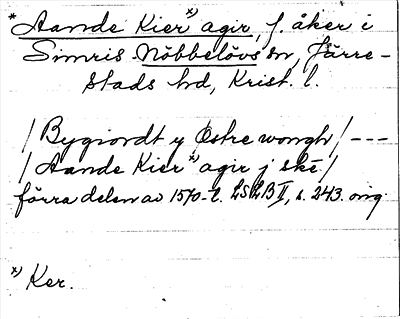 *Aande Kier *) agir, f. åker i
Simris Nöbbelövs sn, Järre-
stads hd, Krist. l.
/ Bygiordt y Østre wongh / ---
/ Aande Kier *) agir j ské /
förra delen av 1570-t. LSLB II, s. 243. orig.
*) Ker.